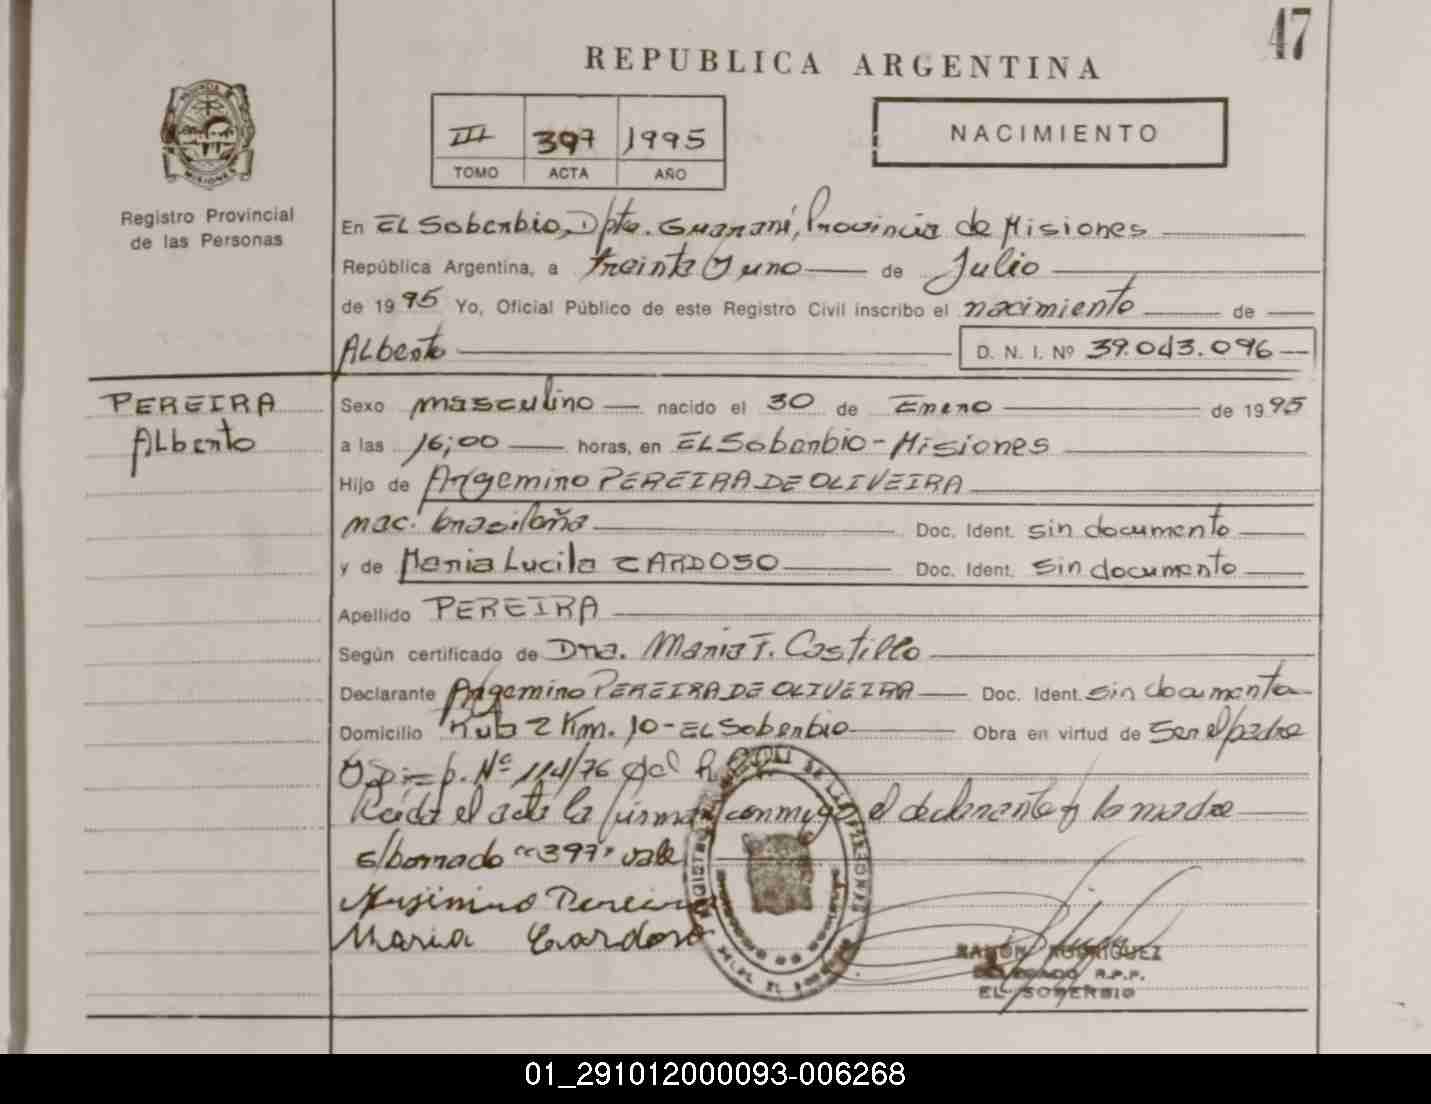 47
REPUBLICA ARGENTINA
III 397 1995
TOMO ACTA AÑO
NACIMIENTO
PROVINCIA MISIONES
Registro Provincial
de las Personas
En EL Soberbio, Dpto. Guaraní, Provincia de Misiones
República Argentina, a treinta y uno de Julio
de 1995 Yo, Oficial Público de este Registro Civil inscribo el nacimiento de
Alberto D. N. I. Nº 39.043.096
PEREIRA
Alberto
Sexo masculino nacido el 30 de Enero de 1995
a las 16;00 horas, en EL Soberbio - Misiones
Hijo de Argemino PEREIRA DE OLIVEIRA
nac. brasileña Doc. Ident. sin documento
y de Maria Lucila CARDOSO Doc. Ident. sin documento
Apellido PEREIRA
Según certificado de Dra. Maria T. Castillo
Declarante Argemino PEREIRA DE OLIVEIRA Doc. Ident. sin documento
Domicilio Ruta 2 Km. 10 - EL Soberbio Obra en virtud de ser el padre
Disp. Nº 114/76 del
Leída el acta la firman conmigo el declarante y la madre
E/borrado "397" vale
Pereira
Maria Cardoso
RAMON RODRIGUEZ
DELEGADO R.P.P.
EL SOBERBIO
01_291012000093-006268